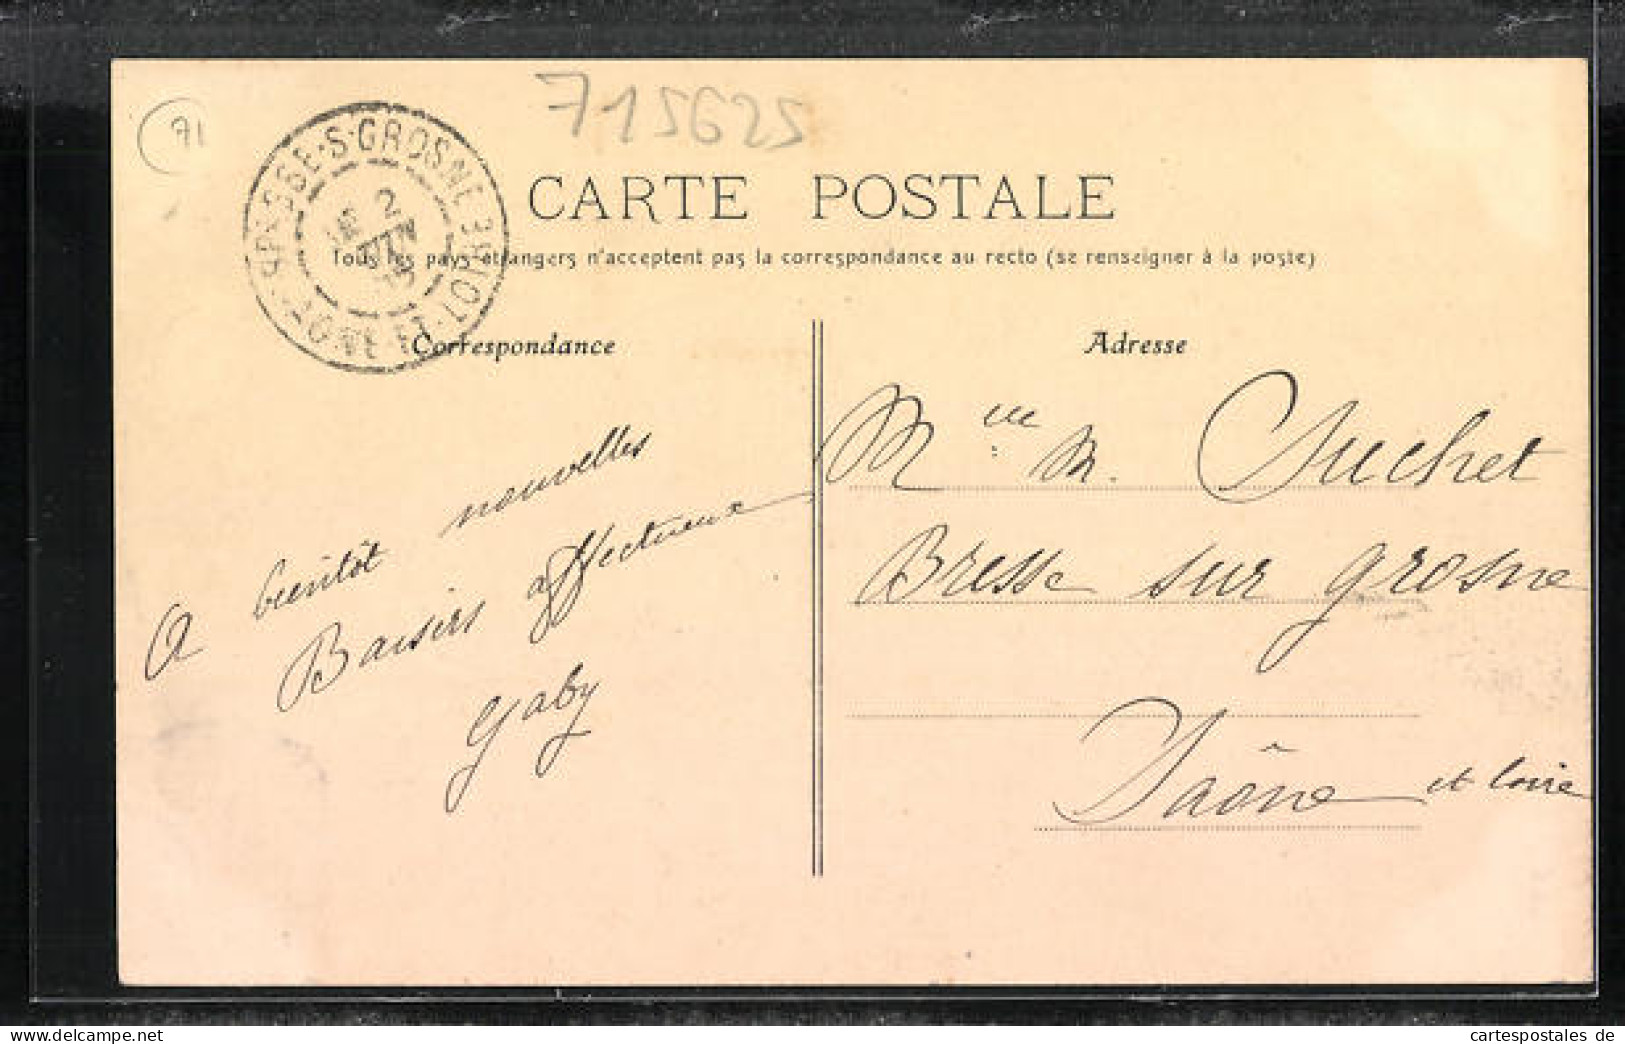 71
715625
BRESSE-S-GROSNE
SAONE-ET-LOIRE
2
JUIN
CARTE POSTALE
Tous les pays étrangers n'acceptent pas la correspondance au recto (se renseigner à la poste)
Correspondance
A bientôt nouvelles
Baisers affectueux
Gaby
Adresse
Mme M. Suchet
Bresse sur grosne
Saône et Loire
delcampe.net
cartespostales de